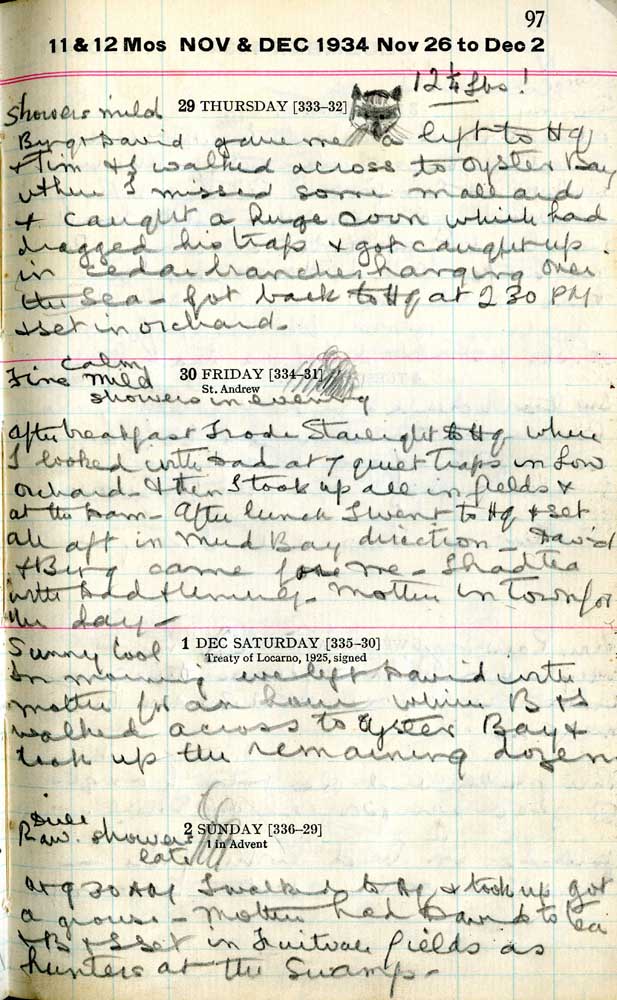 97
11 & 12 Mos NOV & DEC 1934 Nov 26 to Dec 2
12 1/4 lbs!
Showers mild 29 THURSDAY [333–32]
David gave me a left to Hq
& Tim & I walked across to Oyster Bay
where I missed some mallard
& caught a huge coon which had
dragged his trap & got caught up
in cedar branches hanging over
the sea – Got back to Hq at 2 30 PM
& set in orchard –
calm
Fine Mild 30 FRIDAY [334–31]
St. Andrew
showers in evening
After breakfast I rode Starlight to Hq where
I looked with Dad at 7 quiet traps in Low
orchard – & then I took up all in fields &
at the barn – After lunch I went to Hq & set
all aft in Mud Bay direction – David
& came for me – I had tea
with Dad & – Mother in Town for
the day –
1 DEC SATURDAY [335–30]
Sunny Cool Treaty of Locarno, 1925, signed
In morning we left David with
mother for an hour while B & I
walked across to Oyster Bay &
took up the remaining dozen
Dull
Raw. showers 2 SUNDAY [336–29]
late 1 in Advent
At 9 30 I walked to Hq & took up got
a grouse – Mother had to tea
& B & I set in Fruitvale fields as
hunters at the Swamp –